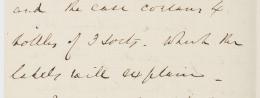 and the case contains 4
bottles of 3 sorts. Which the
labels will explain -